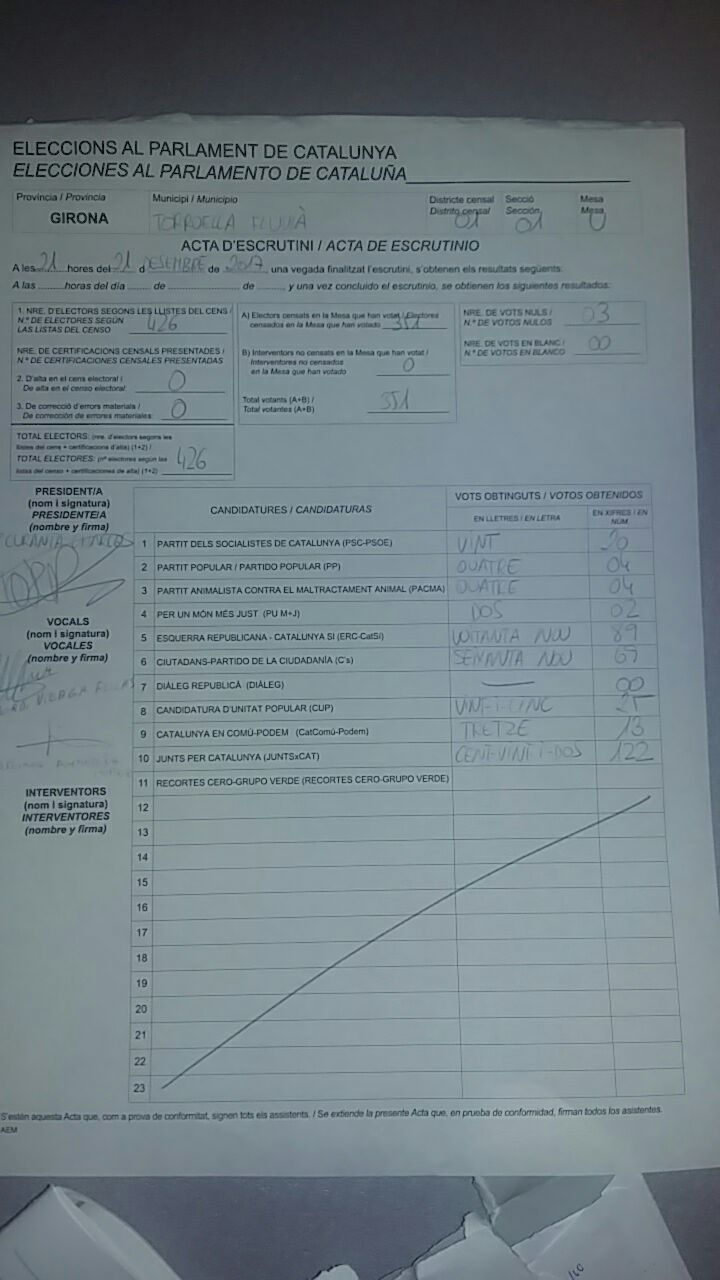 ELECCIONS AL PARLAMENT DE CATALUNYA
ELECCIONES AL PARLAMENTO DE CATALUÑA
Província / Provincia Municipi / Municipio Districte censal Secció Mesa
Distrito censal Sección Mesa
GIRONA TORROELLA FLUVIÀ 01 01 U
ACTA D'ESCRUTINI / ACTA DE ESCRUTINIO
A les 21 hores del 21 d DESEMBRE de 2017, una vegada finalitzat l'escrutini, s'obtenen els resultats següents:
A las ............ horas del día ............ de ............ de ............ y una vez concluido el escrutinio, se obtienen los siguientes resultados:
1. NRE. D'ELECTORS SEGONS LES LLISTES DEL CENS /
N.º DE ELECTORES SEGÚN
LAS LISTAS DEL CENSO 426
NRE. DE CERTIFICACIONS CENSALS PRESENTADES /
N.º DE CERTIFICACIONES CENSALES PRESENTADAS
2. D'alta en el cens electoral /
De alta en el censo electoral: 0
3. De correcció d'errors materials /
De corrección de errores materiales: 0
TOTAL ELECTORS: (nre. d'electors segons les
llistes del cens + certificacions d'alta) (1+2) /
TOTAL ELECTORES: (nº electores según las
listas del censo + certificaciones de alta) (1+2) 426
A) Electors censats en la Mesa que han votat / Electores
censados en la Mesa que han votado 351
B) Interventors no censats en la Mesa que han votat /
Interventores no censados
en la Mesa que han votado 0
Total votants (A+B) /
Total votantes (A+B) 351
NRE. DE VOTS NULS /
N.º DE VOTOS NULOS 03
NRE. DE VOTS EN BLANC /
N.º DE VOTOS EN BLANCO 00
PRESIDENT/A
(nom i signatura)
PRESIDENTE/A
(nombre y firma)
VOCALS
(nom i signatura)
VOCALES
(nombre y firma)
INTERVENTORS
(nom i signatura)
INTERVENTORES
(nombre y firma)
CANDIDATURES / CANDIDATURAS VOTS OBTINGUTS / VOTOS OBTENIDOS
EN LLETRES / EN LETRA EN XIFRES / EN NÚM.
1 PARTIT DELS SOCIALISTES DE CATALUNYA (PSC-PSOE) VINT 20
2 PARTIT POPULAR / PARTIDO POPULAR (PP) QUATRE 04
3 PARTIT ANIMALISTA CONTRA EL MALTRACTAMENT ANIMAL (PACMA) QUATRE 04
4 PER UN MÓN MÉS JUST (PU M+J) DOS 02
5 ESQUERRA REPUBLICANA - CATALUNYA SÍ (ERC-CatSí) VUITANTA NOU 89
6 CIUTADANS-PARTIDO DE LA CIUDADANÍA (C's) SEIXANTA NOU 69
7 DIÀLEG REPUBLICÀ (DIÀLEG) — 00
8 CANDIDATURA D'UNITAT POPULAR (CUP) VINT-I-CINC 25
9 CATALUNYA EN COMÚ-PODEM (CatComú-Podem) TRETZE 13
10 JUNTS PER CATALUNYA (JUNTSxCAT) CENT-VINT-I-DOS 122
11 RECORTES CERO-GRUPO VERDE (RECORTES CERO-GRUPO VERDE)
12
13
14
15
16
17
18
19
20
21
22
23
S'estén aquesta Acta que, com a prova de conformitat, signen tots els assistents. / Se extiende la presente Acta que, en prueba de conformidad, firman todos los asistentes.
AEM